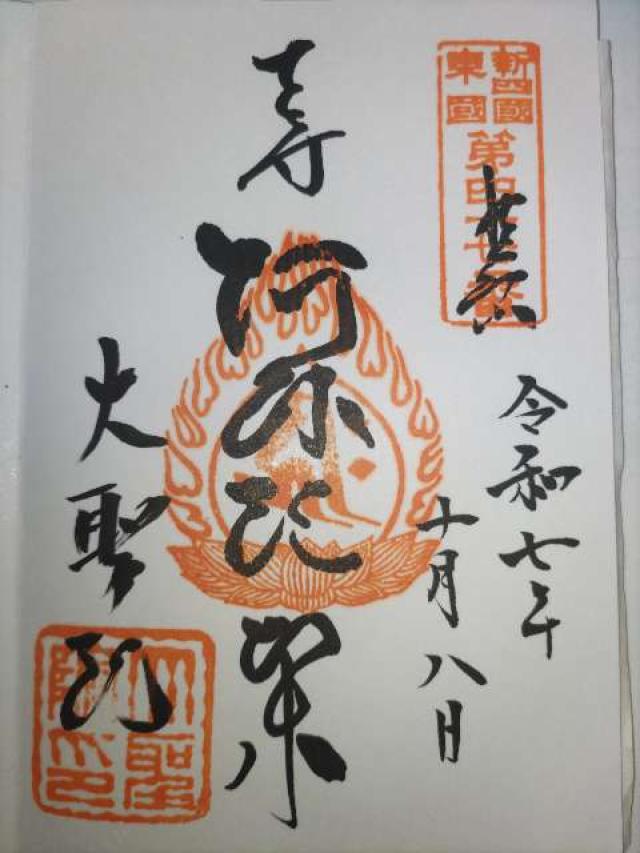 新四國
東國
第四
番
奉拝
令和七年
十月八日
阿弥陀如来
大聖院
大聖
院印